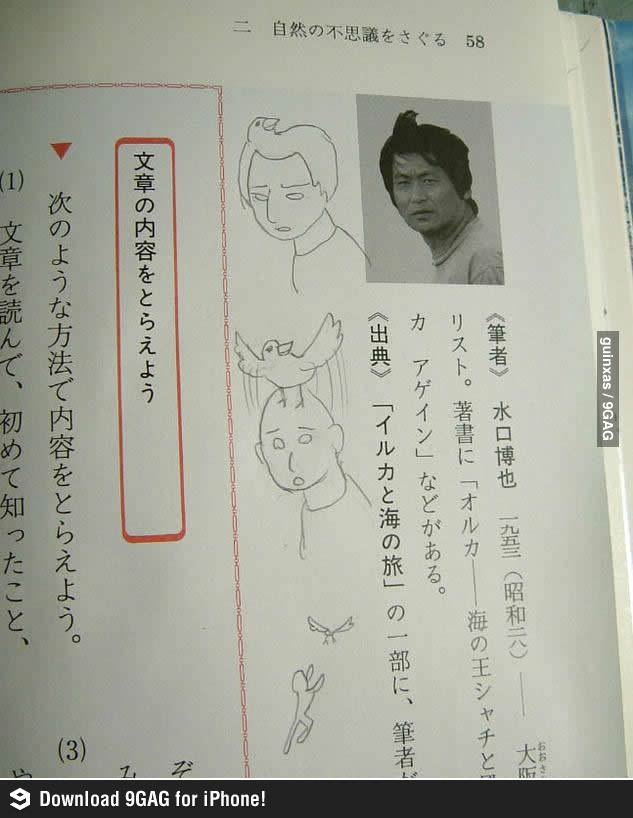 二 自然の不思議をさぐる 58
《筆者》 水口博也 一九五三(昭和二八)—— 大阪
おおさ
リスト。著書に「オルカ——海の王シャチと
カ アゲイン」などがある。
《出典》 「イルカと海の旅」の一部に、筆者が
文章の内容をとらえよう
▼ 次のような方法で内容をとらえよう。
(1) 文章を読んで、初めて知ったこと、
(3)
ぞ
み
や
guinxas / 9GAG
Download 9GAG for iPhone!